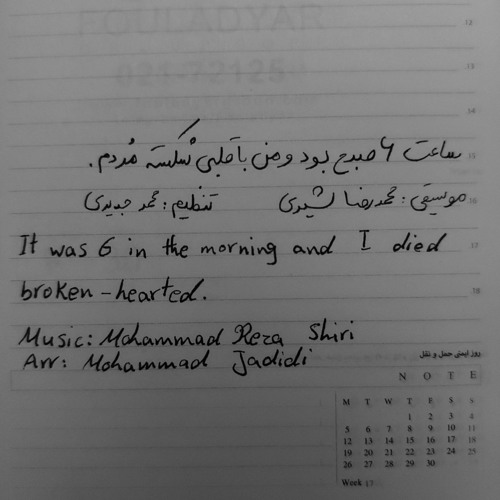 FOULADYAR
12
13
14
15
ساعت ۶ صبح بود و من با قلبی شکسته مُردم.
16
موسیقی: محمدرضا شیری تنظیم: محمد جدیدی
It was 6 in the morning and I died
17
broken-hearted.
18
Music: Mohammad Reza Shiri
Arr: Mohammad Jadidi
روز ایمنی حمل و نقل
NOTE
M T W T F S S
1 2 3 4
5 6 7 8 9 10 11
12 13 14 15 16 17 18
19 20 21 22 23 24 25
26 27 28 29 30
Week 17